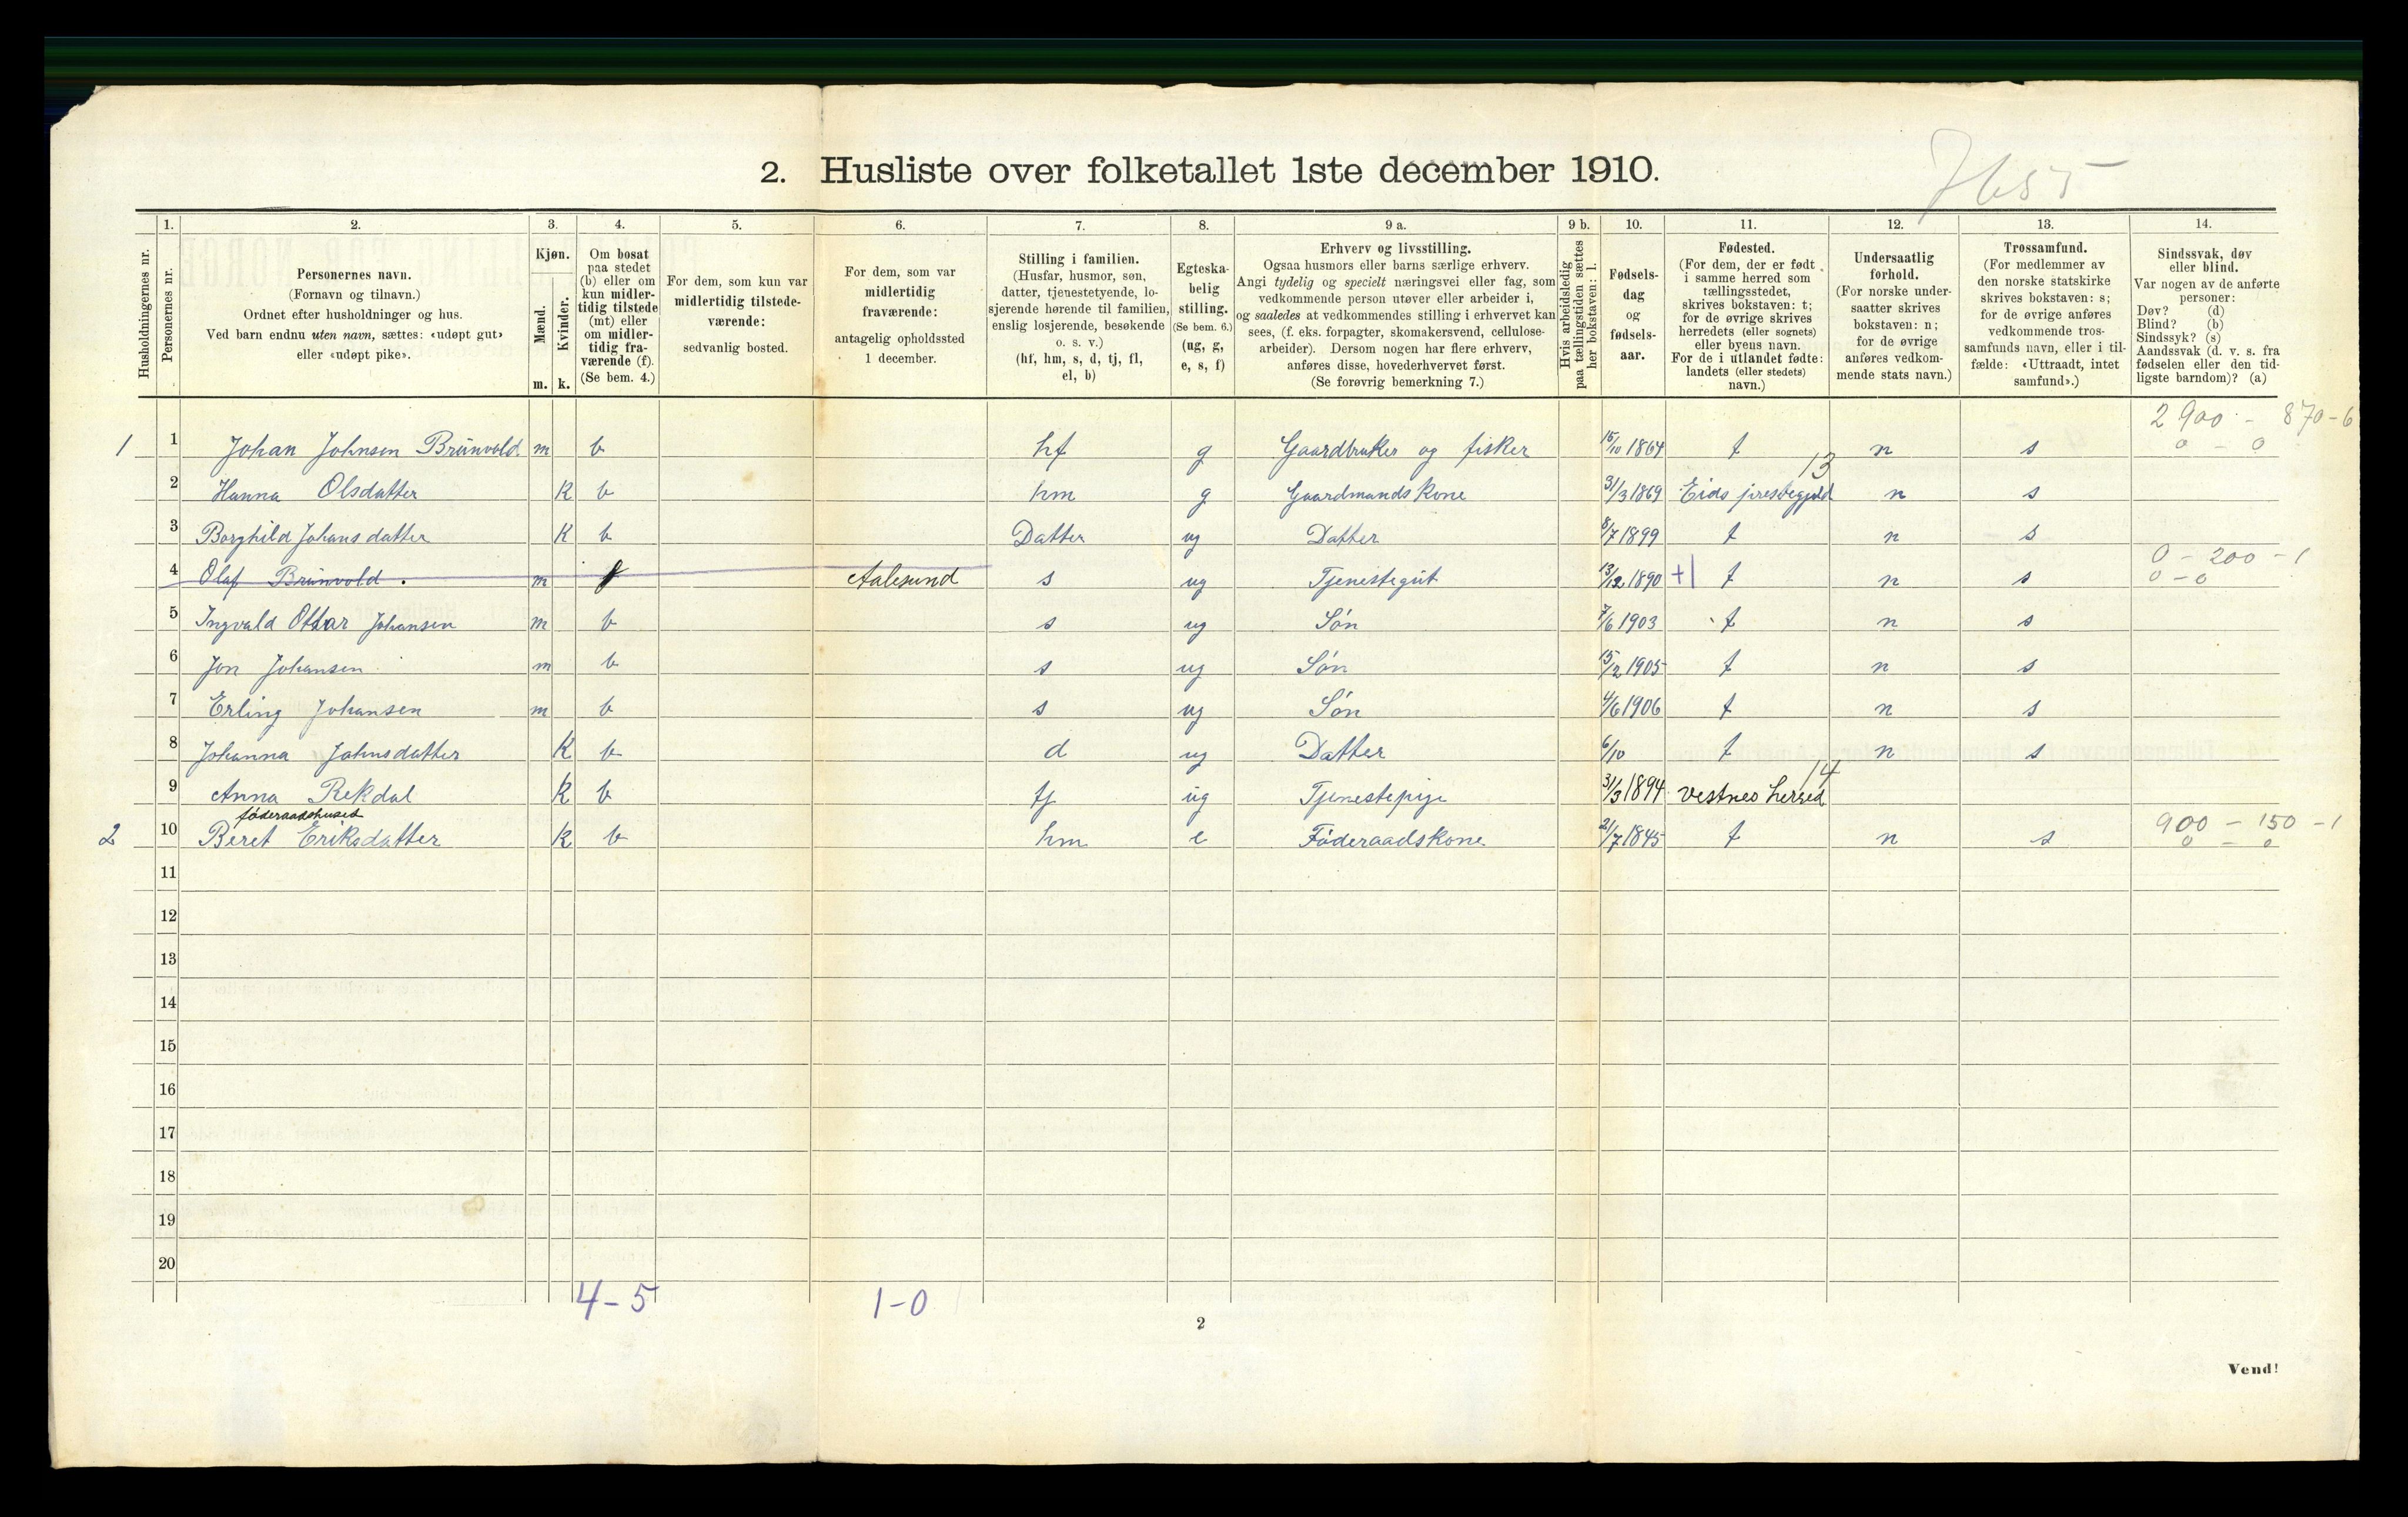 2. Husliste over folketallet 1ste december 1910.
7655
Husholdningernes nr.
1.
Personernes nr.
2.
Personernes navn.
(Fornavn og tilnavn.)
Ordnet efter husholdninger og hus.
Ved barn endnu uten navn, sættes: «udøpt gut»
eller «udøpt pike».
3.
Kjøn.
Mænd.
Kvinder.
m. k.
4.
Om bosat
paa stedet
(b) eller om
kun midler-
tidig tilstede
(mt) eller
om midler-
tidig fra-
værende (f).
(Se bem. 4.)
5.
For dem, som kun var
midlertidig tilstede-
værende:
sedvanlig bosted.
6.
For dem, som var
midlertidig
fraværende:
antagelig opholdssted
1 december.
7.
Stilling i familien.
(Husfar, husmor, søn,
datter, tjenestetyende, lo-
sjerende hørende til familien,
enslig losjerende, besøkende
o. s. v.)
(hf, hm, s, d, tj, fl,
el, b)
8.
Egteska-
belig
stilling.
(Se bem. 6.)
(ug, g,
e, s, f)
9 a.
Erhverv og livsstilling.
Ogsaa husmors eller barns særlige erhverv.
Angi tydelig og specielt næringsvei eller fag, som
vedkommende person utøver eller arbeider i,
og saaledes at vedkommendes stilling i erhvervet kan
sees, (f. eks. forpagter, skomakersvend, cellulose-
arbeider). Dersom nogen har flere erhverv,
anføres disse, hovederhvervet først.
(Se forøvrig bemerkning 7.)
9 b.
Hvis arbeidsledig
paa tællingstiden sættes
her bokstaven: l.
10.
Fødsels-
dag
og
fødsels-
aar.
11.
Fødested.
(For dem, der er født
i samme herred som
tællingsstedet,
skrives bokstaven: t;
for de øvrige skrives
herredets (eller sognets)
eller byens navn.
For de i utlandet fødte:
landets (eller stedets)
navn.)
12.
Undersaatlig
forhold.
(For norske under-
saatter skrives
bokstaven: n;
for de øvrige
anføres vedkom-
mende stats navn.)
13.
Trossamfund.
(For medlemmer av
den norske statskirke
skrives bokstaven: s;
for de øvrige anføres
vedkommende tros-
samfunds navn, eller i til-
fælde: «Uttraadt, intet
samfund».)
14.
Sindssvak, døv
eller blind.
Var nogen av de anførte
personer:
Døv? (d)
Blind? (b)
Sindssyk? (s)
Aandssvak (d. v. s. fra
fødselen eller den tid-
ligste barndom)? (a)
2900 - 870-6
1 1 Johan Johnsen Brünvold. m b hf g Gaardbruker og fisker 15/10 1864 t n s 0 - 0
13
2 Hanna Olsdatter k b hm g Gaardmandskone 31/3 1869 Eids prestegjeld n s
3 Borghild Johansdatter k b Datter ug Datter 8/7 1899 t n s
0 - 200 - 1
4 Olaf Brünvold. m f Aalesund s ug Tjenestegut 13/12 1890 +1 t n s 0-0
5 Ingvald Ottar Johansen m b s ug Søn 7/6 1903 t n s
6 Jon Johansen m b s ug Søn 15/2 1905 t n s
7 Erling Johansen m b s ug Søn 4/6 1906 t n s
8 Johanna Johnsdatter k b d ug Datter 6/10 t n s
14
9 Anna Rekdal k b tj ug Tjenestepige 31/3 1894 vestnes herred
føderaadshuset
900 - 150 - 1
2 10 Beret Eriksdatter k b hm e Føderaadskone 21/7 1845 t n s 0 - 0
11
12
13
14
15
16
17
18
19
20
4-5 1-0
2
Vend!